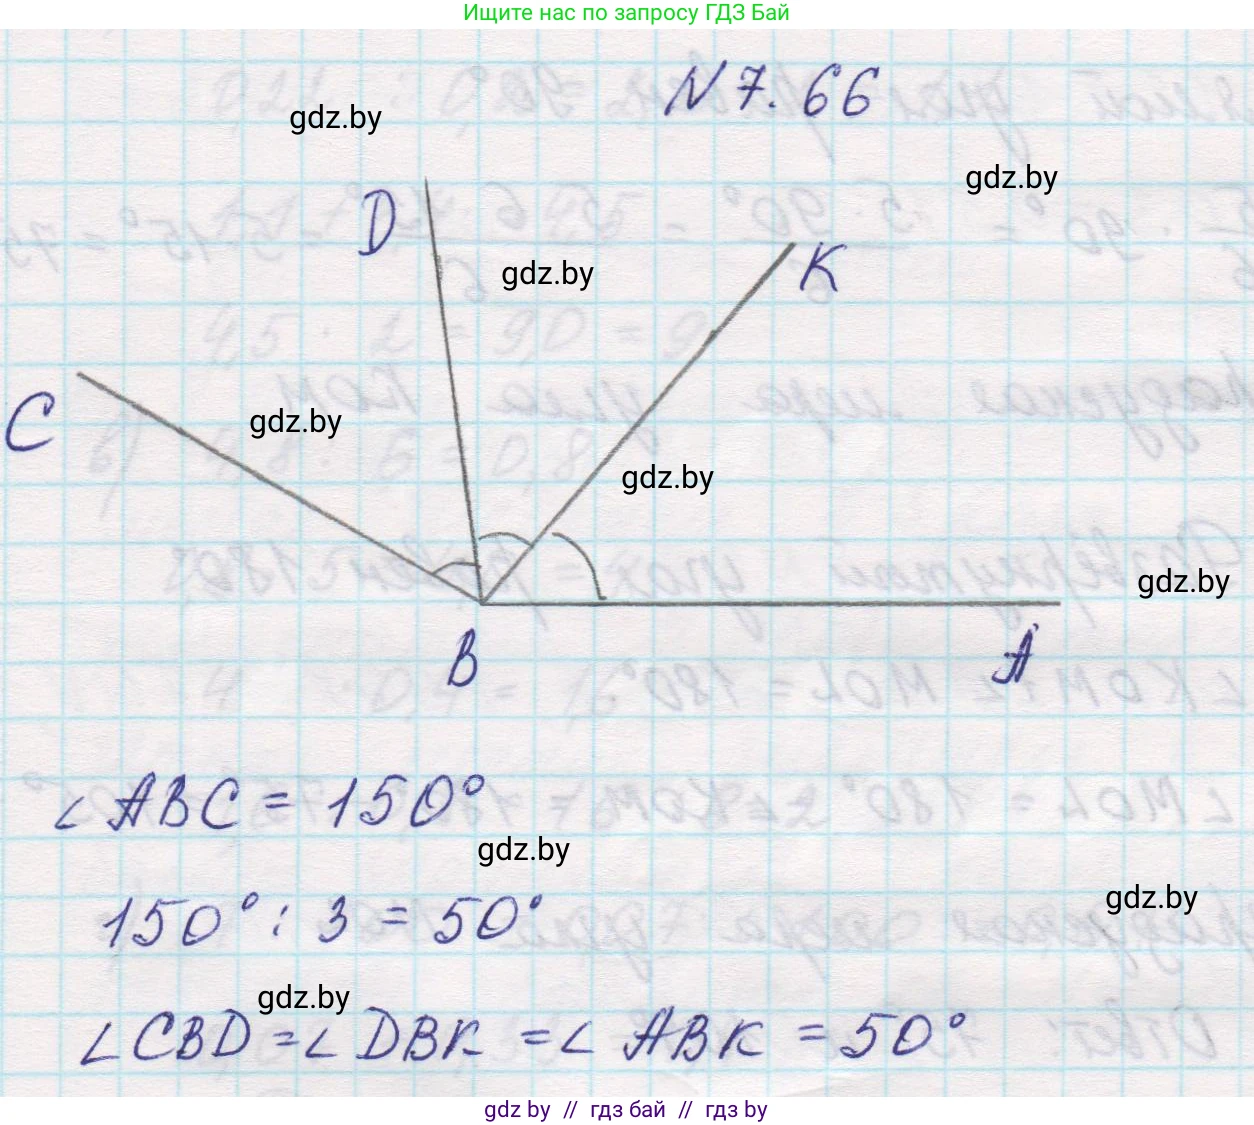 Ищите нас по запросу ГДЗ Бай
N 7.66
gdz.by
gdz.by
D
K
gdz.by
C
gdz.by
gdz.by
gdz.by
B
A
∠ABC = 150°
gdz.by
gdz.by
150° : 3 = 50°
gdz.by
∠CBD = ∠DBK = ∠ABK = 50°
gdz.by // гдз бай // гдз by